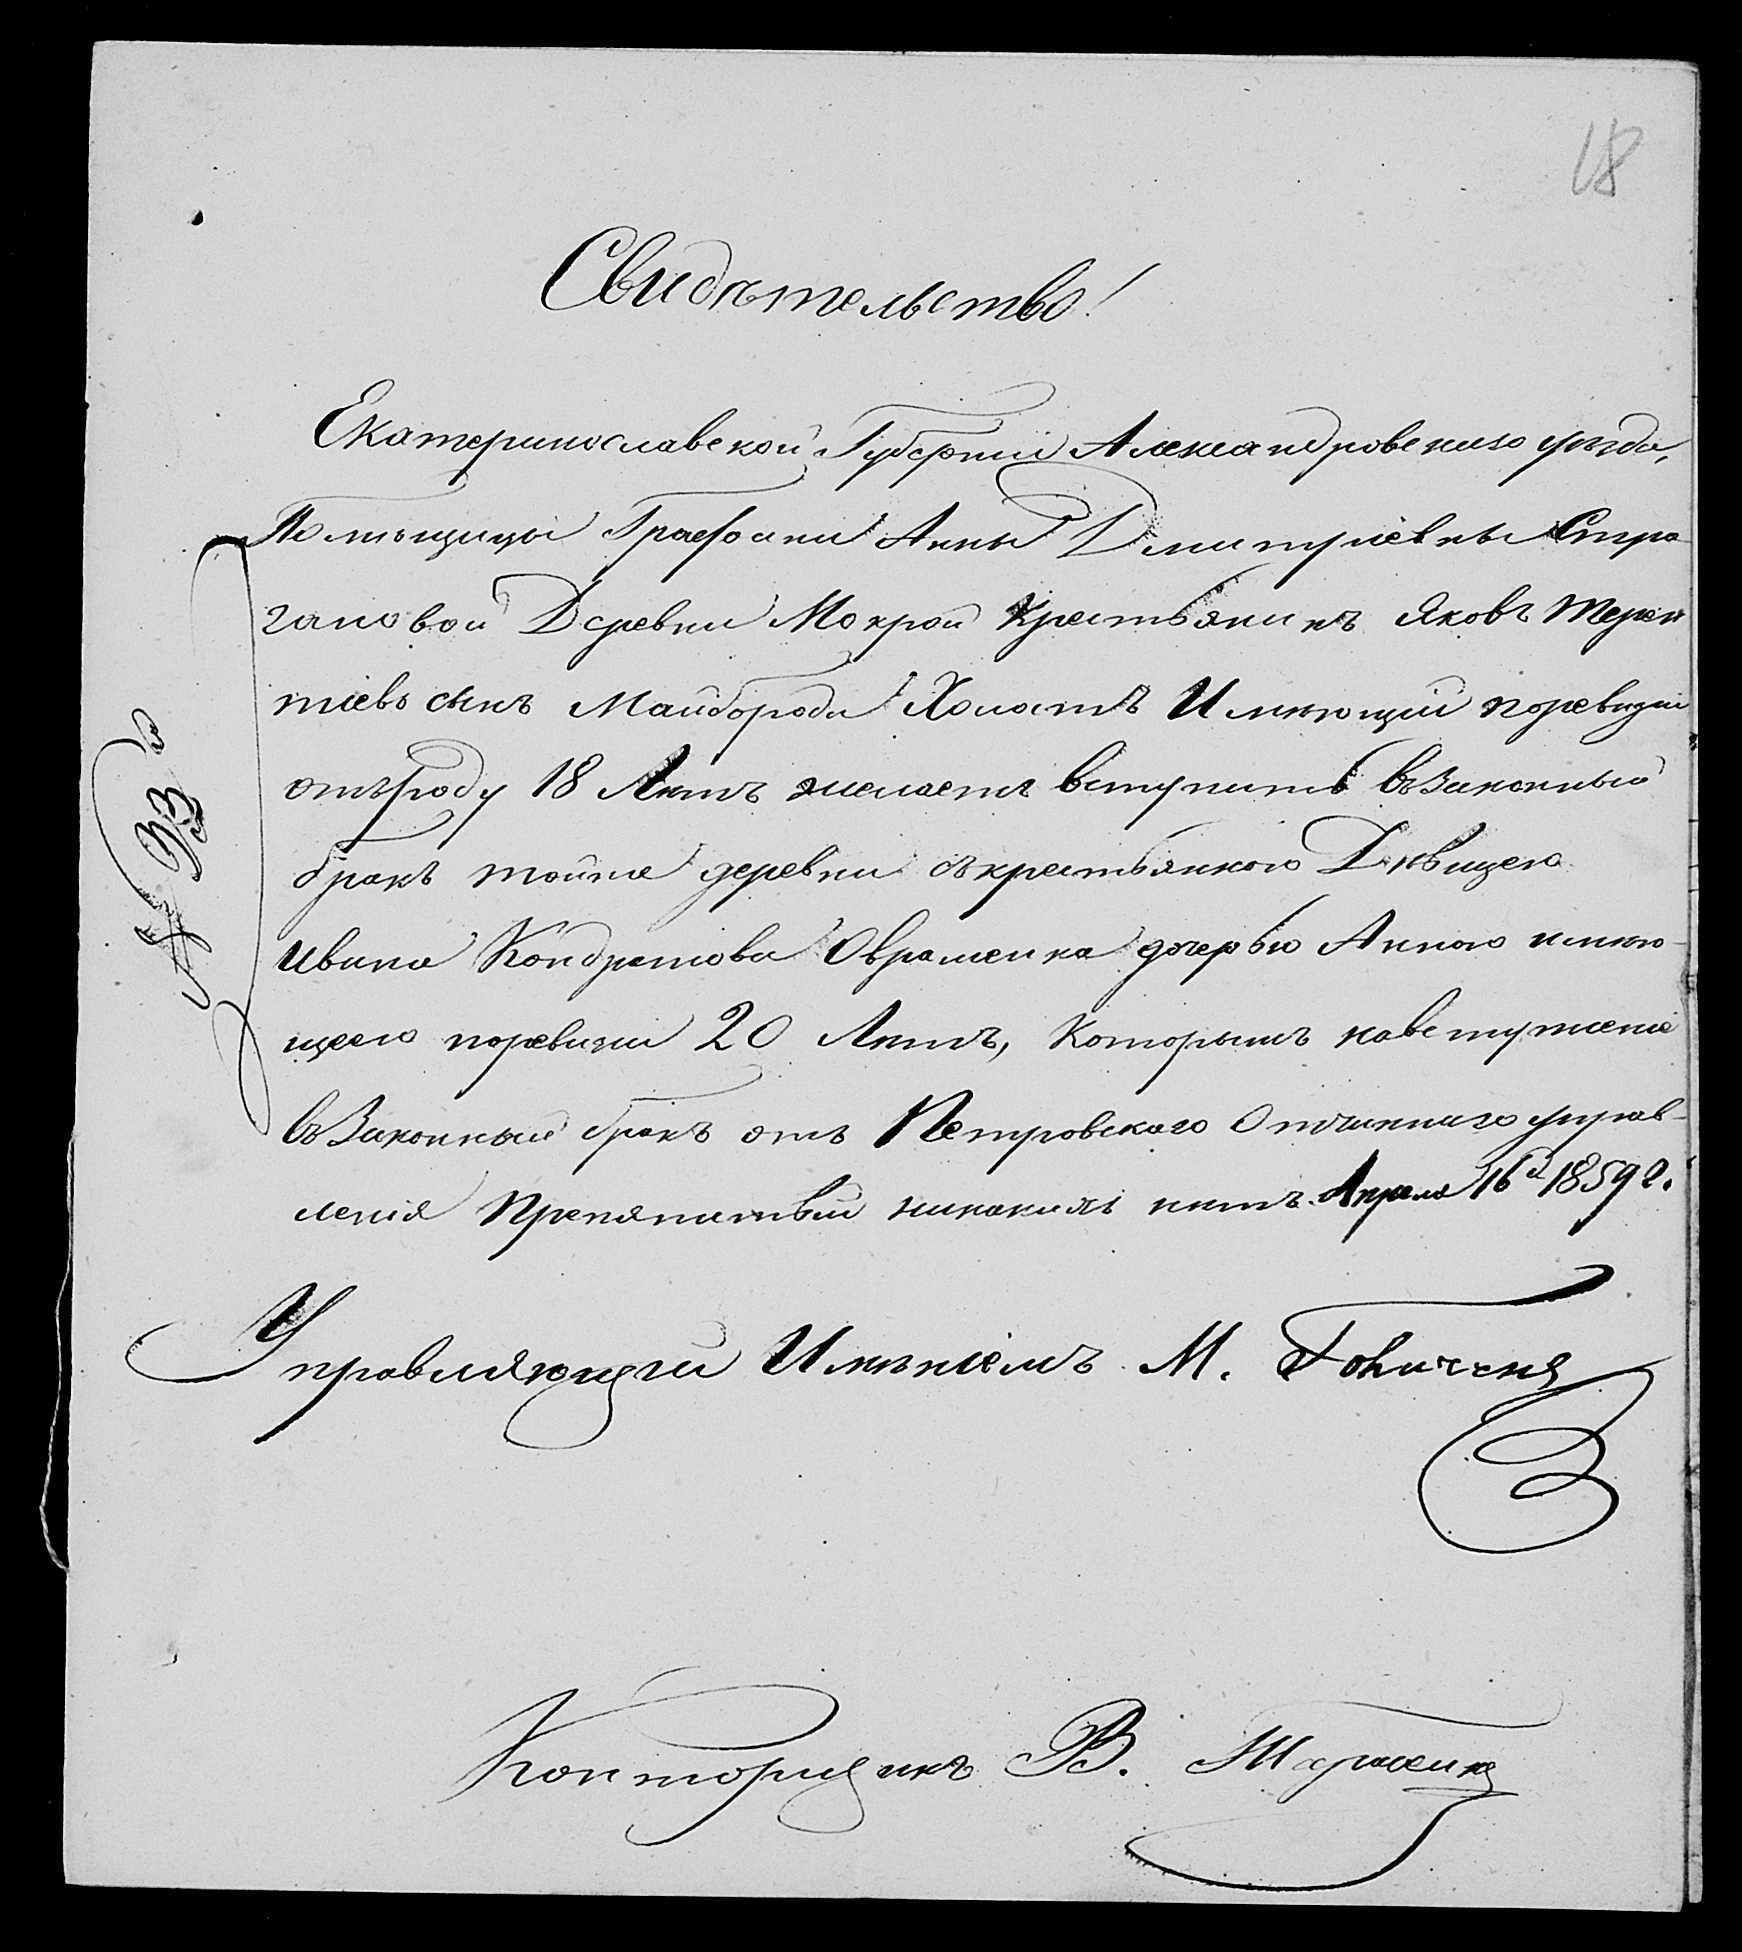 18
Свидѣтельство!
Екатеринославской Губерніи Александровскаго уѣзда,
Помѣщицы Графини Анны Дмитріевны Стро
гановой Деревни Мокрой Крестьянинъ Яковъ Терен
тіевъ сынъ Майборода Холостъ Имѣющій поревизіи
отъроду 18 Лѣтъ желаетъ вступить взаконный
бракъ тойже деревни съкрестьянкою Дѣвицею
Ивана Кондратова Овраменка дочерью Анною имѣю-
щею поревизіи 20 Лѣтъ, Которымъ навступленіе
взаконный бракъ отъ Петровскаго Отчиннаго управ-
ленія Препятствій никакихъ нѣтъ. Апреля 16 д 1859 г.
№ 33й
Управляющій Имѣніемъ М.
Конторщикъ В.